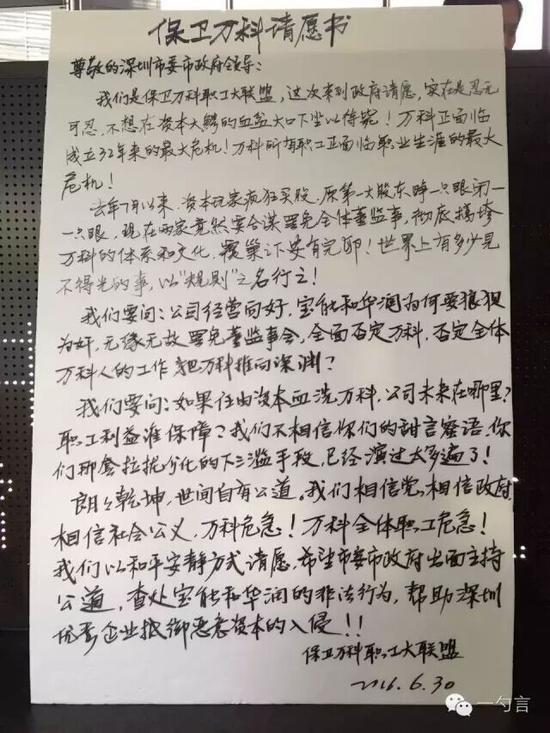 保卫万科请愿书
尊敬的深圳市委市政府领导：
我们是保卫万科职工大联盟，这次来到政府请愿，实在是忍无
可忍，不想在资本大鳄的血盆大口下坐以待毙！万科正面临
成立32年来的最大危机！万科所有职工正面临职业生涯的最大
危机！
去年7月以来，资本玩家疯狂买股，原第一大股东睁一只眼闭
一只眼，现在两家竟然要合谋罢免全体董监事，彻底搞垮
万科的体系和文化，覆巢之下安有完卵！世界上有多少见
不得光的事，以“规则”之名行之！
我们要问：公司经营向好，宝能和华润为何要狼狈
为奸，无缘无故罢免董监事会，全面否定万科，否定全体
万科人的工作，把万科推向深渊？
我们要问：如果任由资本血洗万科，公司未来在哪里？
职工利益谁保障？我们不相信你们的甜言蜜语，你
们那套拉拢分化的下三滥手段，已经演过太多遍了！
朗々乾坤，世间自有公道。我们相信党，相信政府，
相信社会公义，万科危急！万科全体职工危急！
我们以和平安静方式请愿，希望市委市政府出面主持
公道，查处宝能和华润的非法行为，帮助深圳
优秀企业抵御恶意资本的入侵！！
保卫万科职工大联盟
2016.6.30
一勺言